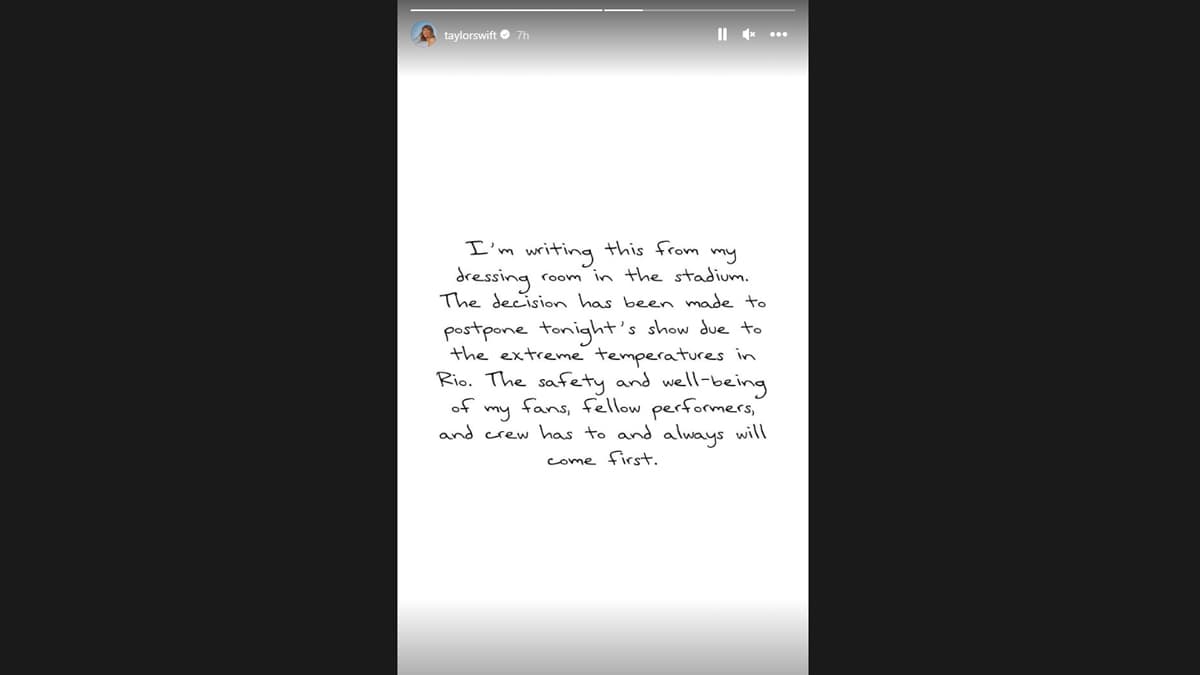 taylorswift 7h
I'm writing this from my
dressing room in the stadium.
The decision has been made to
postpone tonight's show due to
the extreme temperatures in
Rio. The safety and well-being
of my fans, fellow performers,
and crew has to and always will
come first.